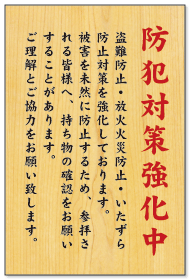 防犯対策強化中
盗難防止・放火火災防止・いたずら
防止対策を強化しております。
被害を未然に防止するため、参拝さ
れる皆様へ、持ち物の確認をお願い
することがあります。
ご理解とご協力をお願い致します。